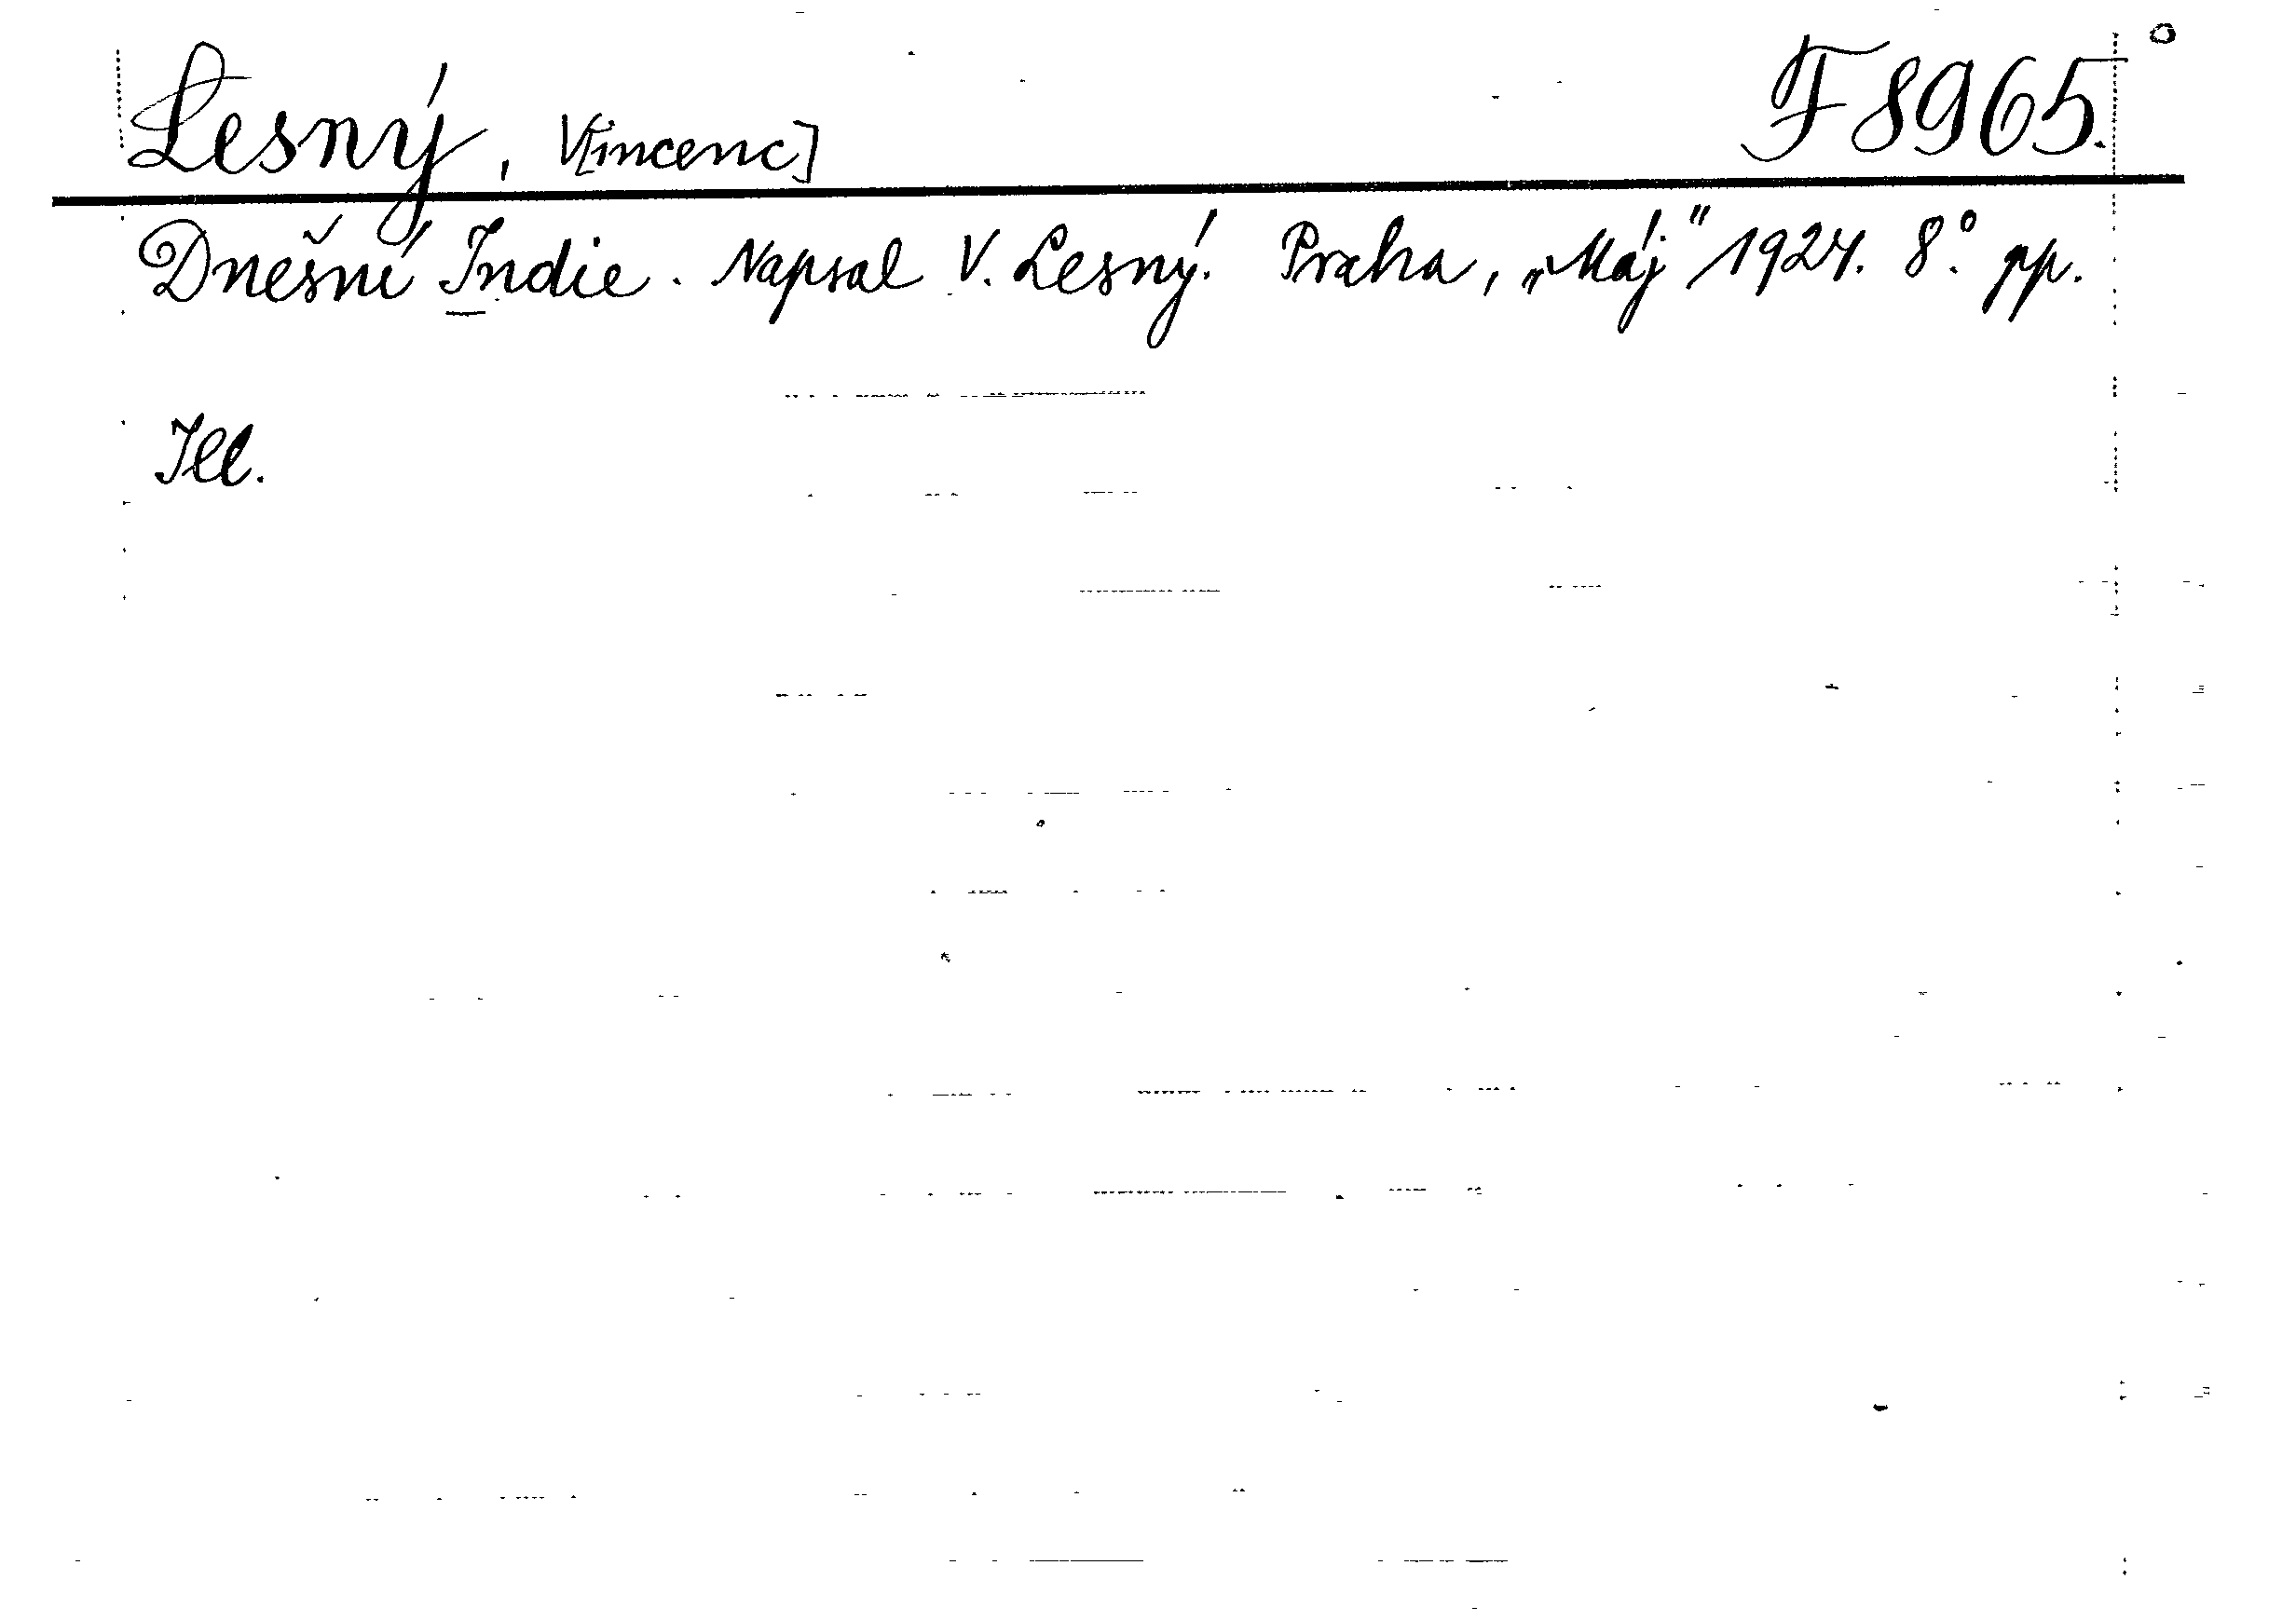 Lesný, V[incenc] F 8965.
Dnešní Indie. Napsal V. Lesný. Praha, „Máj" 1924. 8°. pp.
Ill.